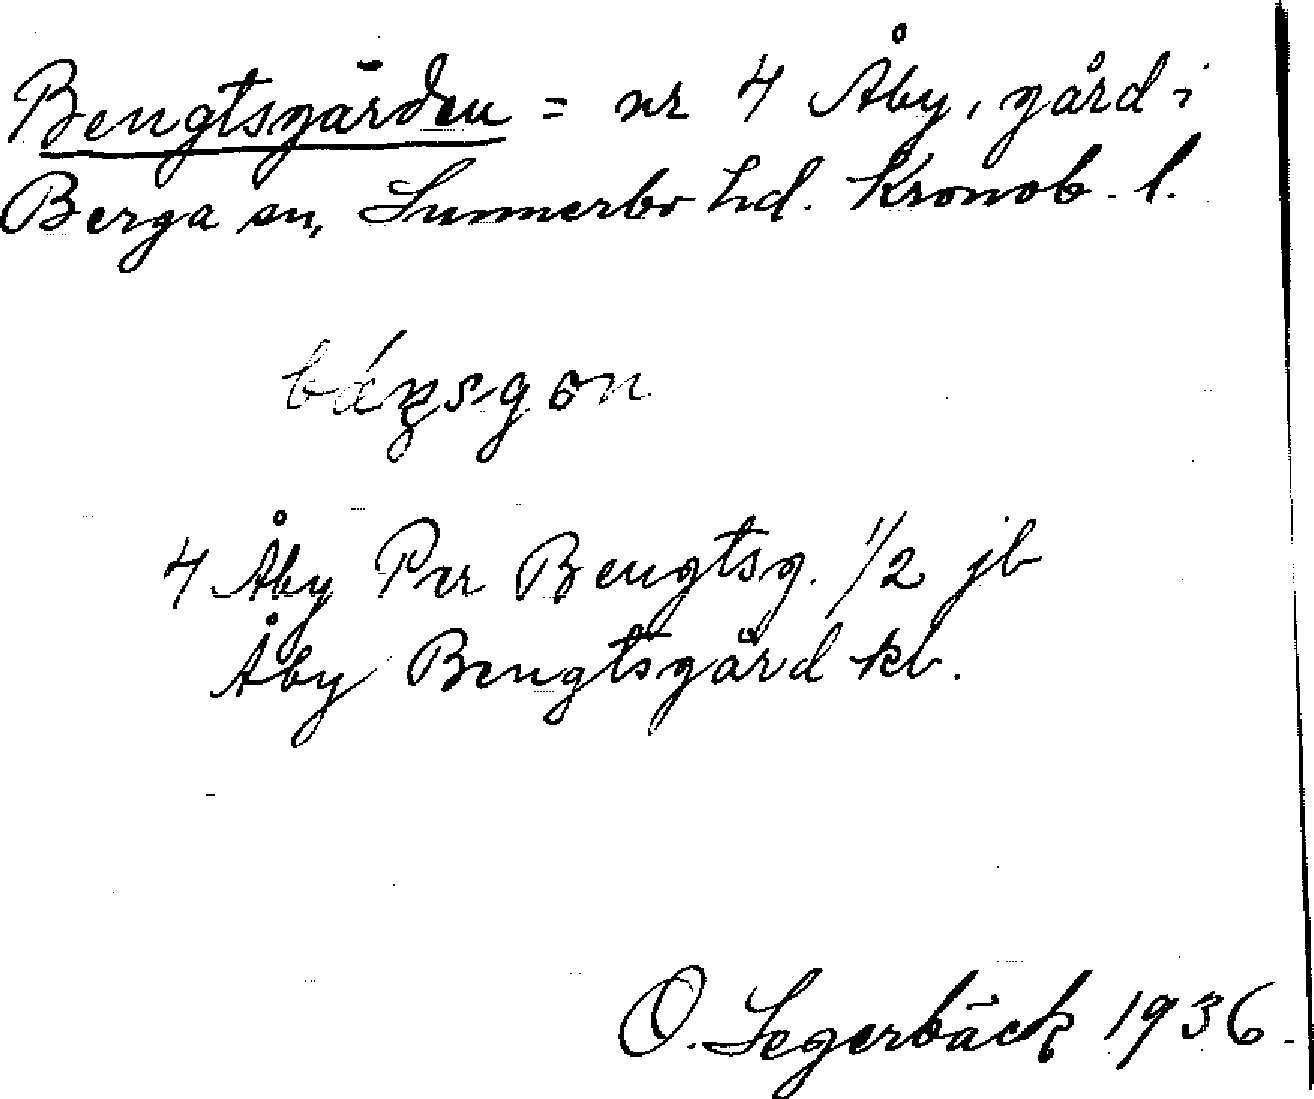 Bengtsgården = nr 4 Åby, gård i
Berga sn, Sunnerbo hd. Kronob. l.
4 Åby Per Bengtsg. 1/2 jb
Åby Bengtsgård kb.
O. Segerbäck 1936.